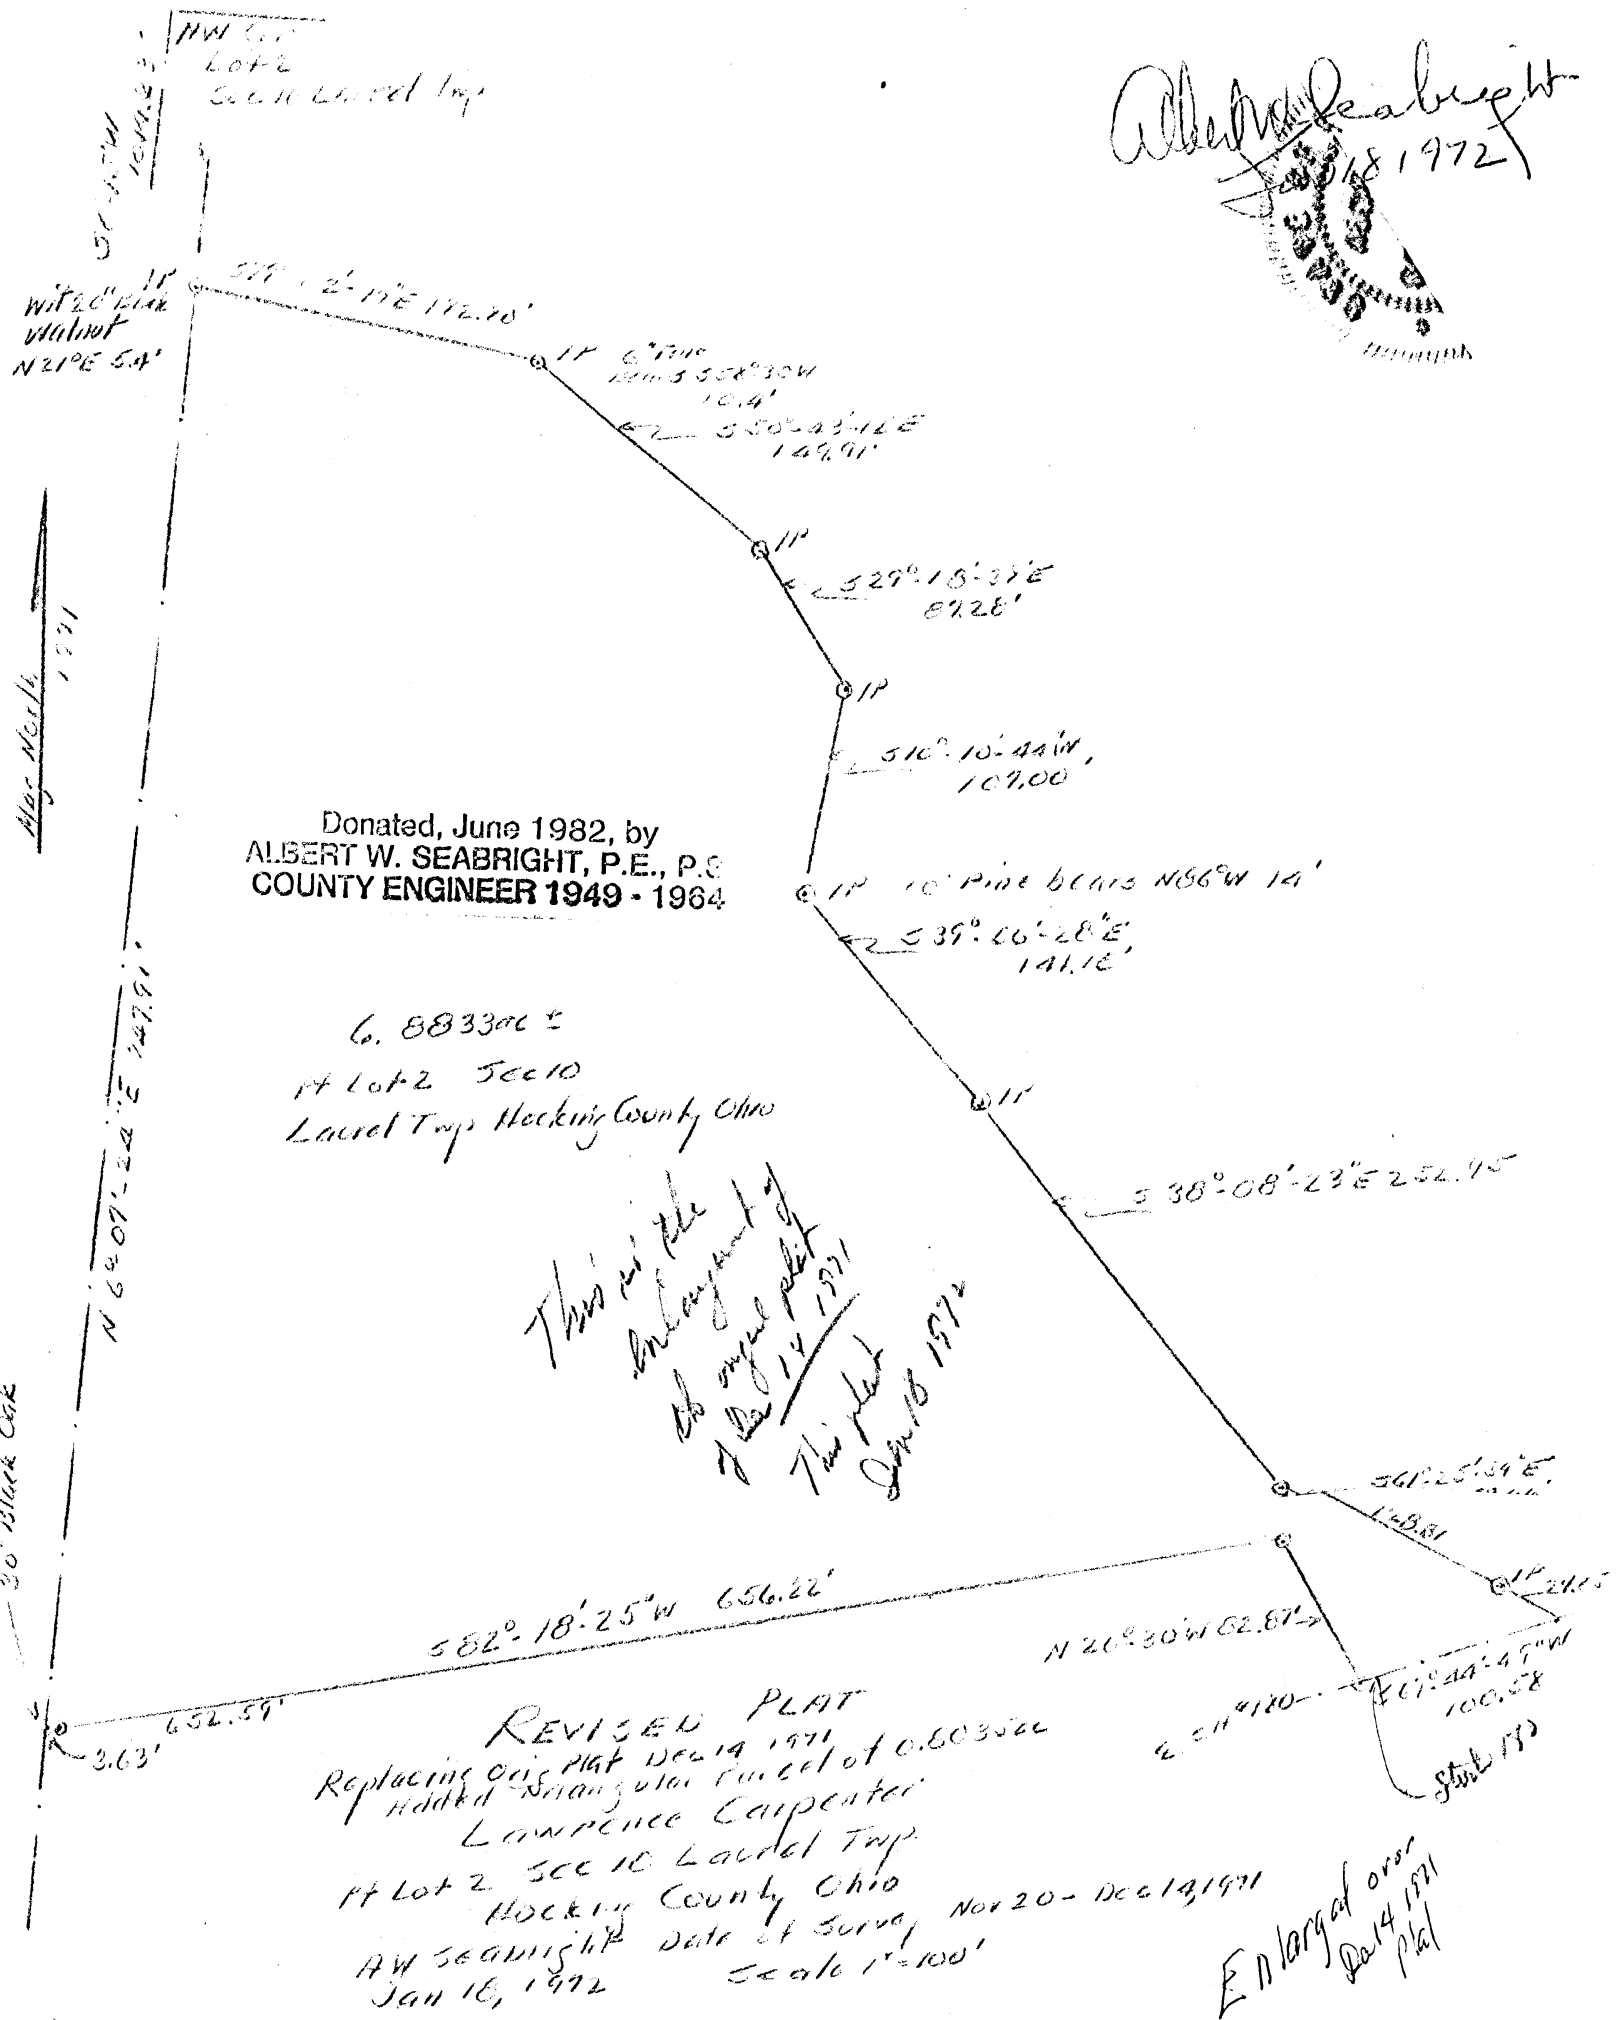 NW Cor
Lot 2
Sec 10 Laurel Twp
Seabright
Jan 18 1972
IP
Wit 20" Black
Walnut
N21°E 5.4'
IP 6" Pine
bears S58°30W
10.4'
149.91'
IP
87.28'
IP
Mag North
1971
S10°-10'-44"W,
107.00
Donated, June 1982, by
ALBERT W. SEABRIGHT, P.E., P.S
COUNTY ENGINEER 1949 - 1964
IP 10" Pine bears N86°W 14'
S39°-26'-28"E,
IP
6.8833ac ±
Pt Lot 2 Sec 10
Laurel Twp Hocking County Ohio
N 6°-07'-24"E 747.91'
S 38°-08'-23"E 252.95
This is the
enlargement of
original plat
of Dec 14 1971
This plat
Jan 18 1972
30" Black Oak
128.81
IP
24.65
S82°-18'-25"W 656.22'
N 26°30'W 82.87'
100.58
652.59'
3.63'
REVISED PLAT
Replacing Orig Plat Dec 14 1971
Added Triangular Parcel of 0.6035ac
Lawrence Carpenter
Pt Lot 2 Sec 10 Laurel Twp.
Hocking County Ohio
AW Seabright Date of Survey Nov 20 - Dec 14, 1971
Jan 18, 1972 Scale 1"=100'
Enlarged over
Dec 14 1971
plat